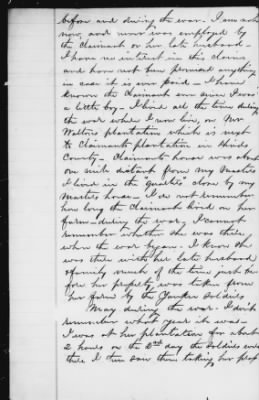 before and during the war. I am not
now, and never was employed by
the claimant or her late husband.
I have no interest in this claim
and have not been promised anything
in case it is ever paid. I have
known the claimant ever since I was
a little boy. I lived all the time during
the war where I now live, on Mr
Waltons plantation which is next
to claimants plantation in Hinds
County. Claimants house was about
one mile distant from my masters
I lived in the quarters close by my
masters house. I do not remember
how long the claimant lived on her
farm during the war, I cannot
remember whether she was there
when the war began. I know she
was there with her late husband
& family much of the time just be
fore her property was taken from
her farm by the Yankee soldiers
May during the war. I don't
remember what year it was
I was at her plantation for about
2 hours on the 2nd day the soldiers were
there I then saw them taking her prop